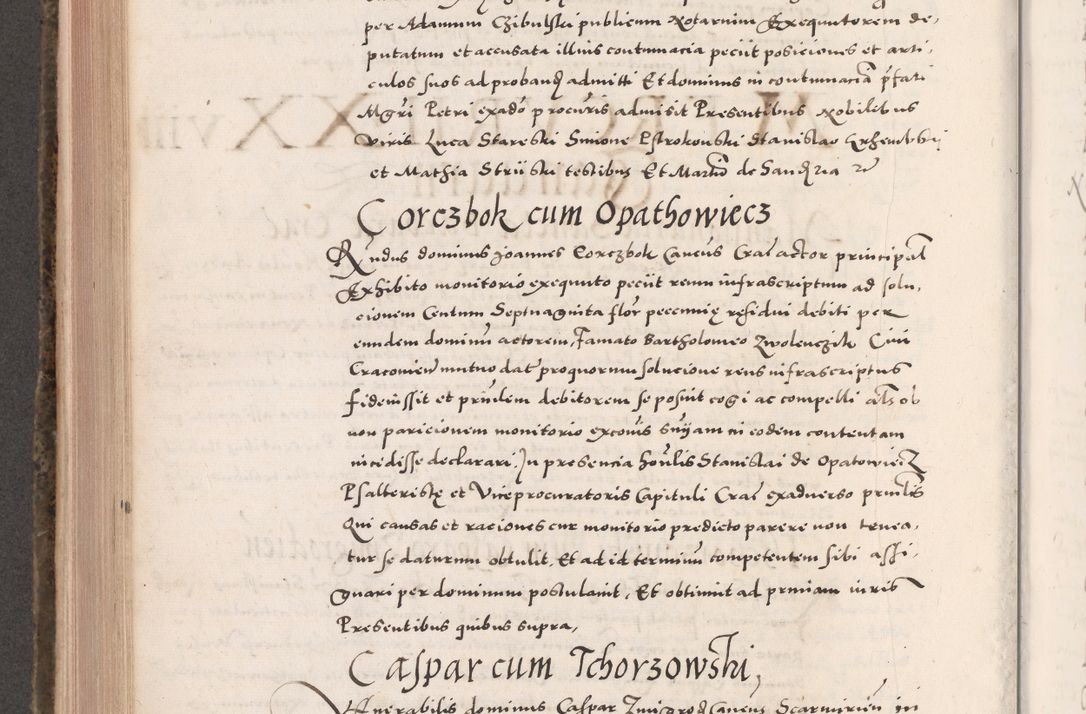 per Adamum Czibulski publicum Notarium Exequutorem de,
putatum et accusata illius contumacia peciit posiciones et arti,
culos suos ad proband admitti Et dominus in contumacia pfati
Mgri Petri exado procuris admisit Presentibus Nobilibus
viris Luca Stareski Simone Pstrokonski Stanislao
et Mathia Striiski testibus Et Martino de Sandzia etc
Corczbok cum Opathowiecz
Rndus dominus Joannes Corczbok Caneus Crac actor principal
Exhibito monitorio exequuto peciit reum infrascriptum ad solu,
cionem Centum Septuaginta flor pecunnię residui debiti per
eundem dominum actorem, famato Bartholomeo Zwolenczik Civi
Cracovien mutuo dat pro quorum solucione reus infrascriptus
fideiussit et prnlem debitorem se posuit cogi ac compelli als ob
non paricionem monitorio excouis snijam in eodem contentam
incidisse declarari, In presencia houlis Stanislai de Opatowiecz
Psalteristę et Viceprocuratoris Capituli Crac exadverso prnlis
Qui causas et raciones cur monitorio predicto parere non tenea,
tur se daturum obtulit, Et ad id terminum competentem sibi assi,
gnari per dominum postulavit, Et obtinuit ad prmiam iuris
Presentibus quibus supra,
Caspar cum Tchorzowski,
Venerabilis dominus Caspar Caneus Scarmirien in